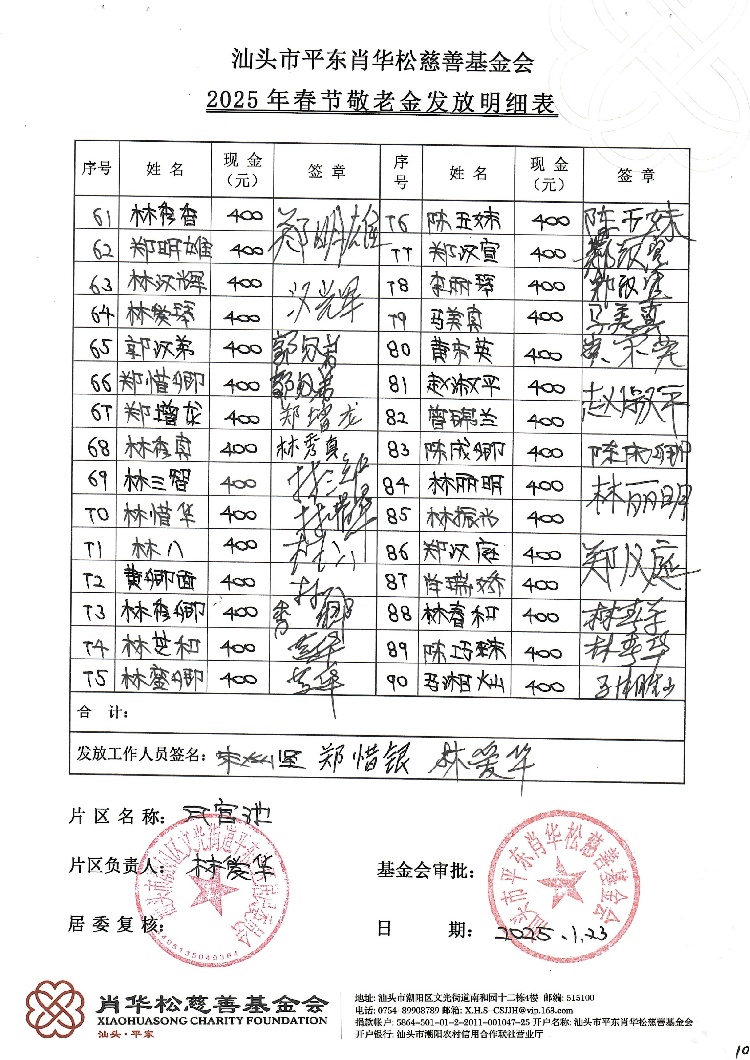 汕头市平东肖华松慈善基金会
2025年春节敬老金发放明细表
序号 姓名 现金（元） 签章 序号 姓名 现金（元） 签章
61 林秀香 400 郑明雄 76 陈玉妹 400 陈玉妹
62 郑明雄 400 77 郑汉宣 400 郑汉宣
63 林汉辉 400 汉光辉 78 李丽琴 400 郑汉宣
64 林爱琴 400 79 马美真 400 马美真
65 郭汉弟 400 80 黄宋英 400
66 郑惜卿 400 81 赵淑平 400 赵淑平
67 郑增龙 400 郑增龙 82 曾锦兰 400
68 林秀真 400 林秀真 83 陈成卿 400
69 林三智 400 84 林丽明 400 林丽明
70 林惜华 400 85 林振光 400
71 林八 400 86 郑汉庭 400 郑汉庭
72 黄卿面 400 87 许瑞娇 400
73 林秀卿 400 88 林春和 400
74 林芝和 400 89 陈巧妹 400
75 林銮卿 400 90 马湘灿 400
合计：
发放工作人员签名： 郑惜银 林爱华
片区名称：
片区负责人：林爱华 基金会审批：
居委复核： 日期：2025.1.23
汕头市平东肖华松慈善基金会
肖华松慈善基金会
XIAOHUASONG CHARITY FOUNDATION
汕头·平东
地址: 汕头市潮阳区文光街道南和园十二栋4楼 邮编: 515100
电话: 0754-89908789 邮箱: X.H.S-CSJJH@vip.163.com
捐款帐户: 5864-501-01-2-2011-001047-25 开户名称: 汕头市平东肖华松慈善基金会
开户银行: 汕头市潮阳农村信用合作联社营业厅